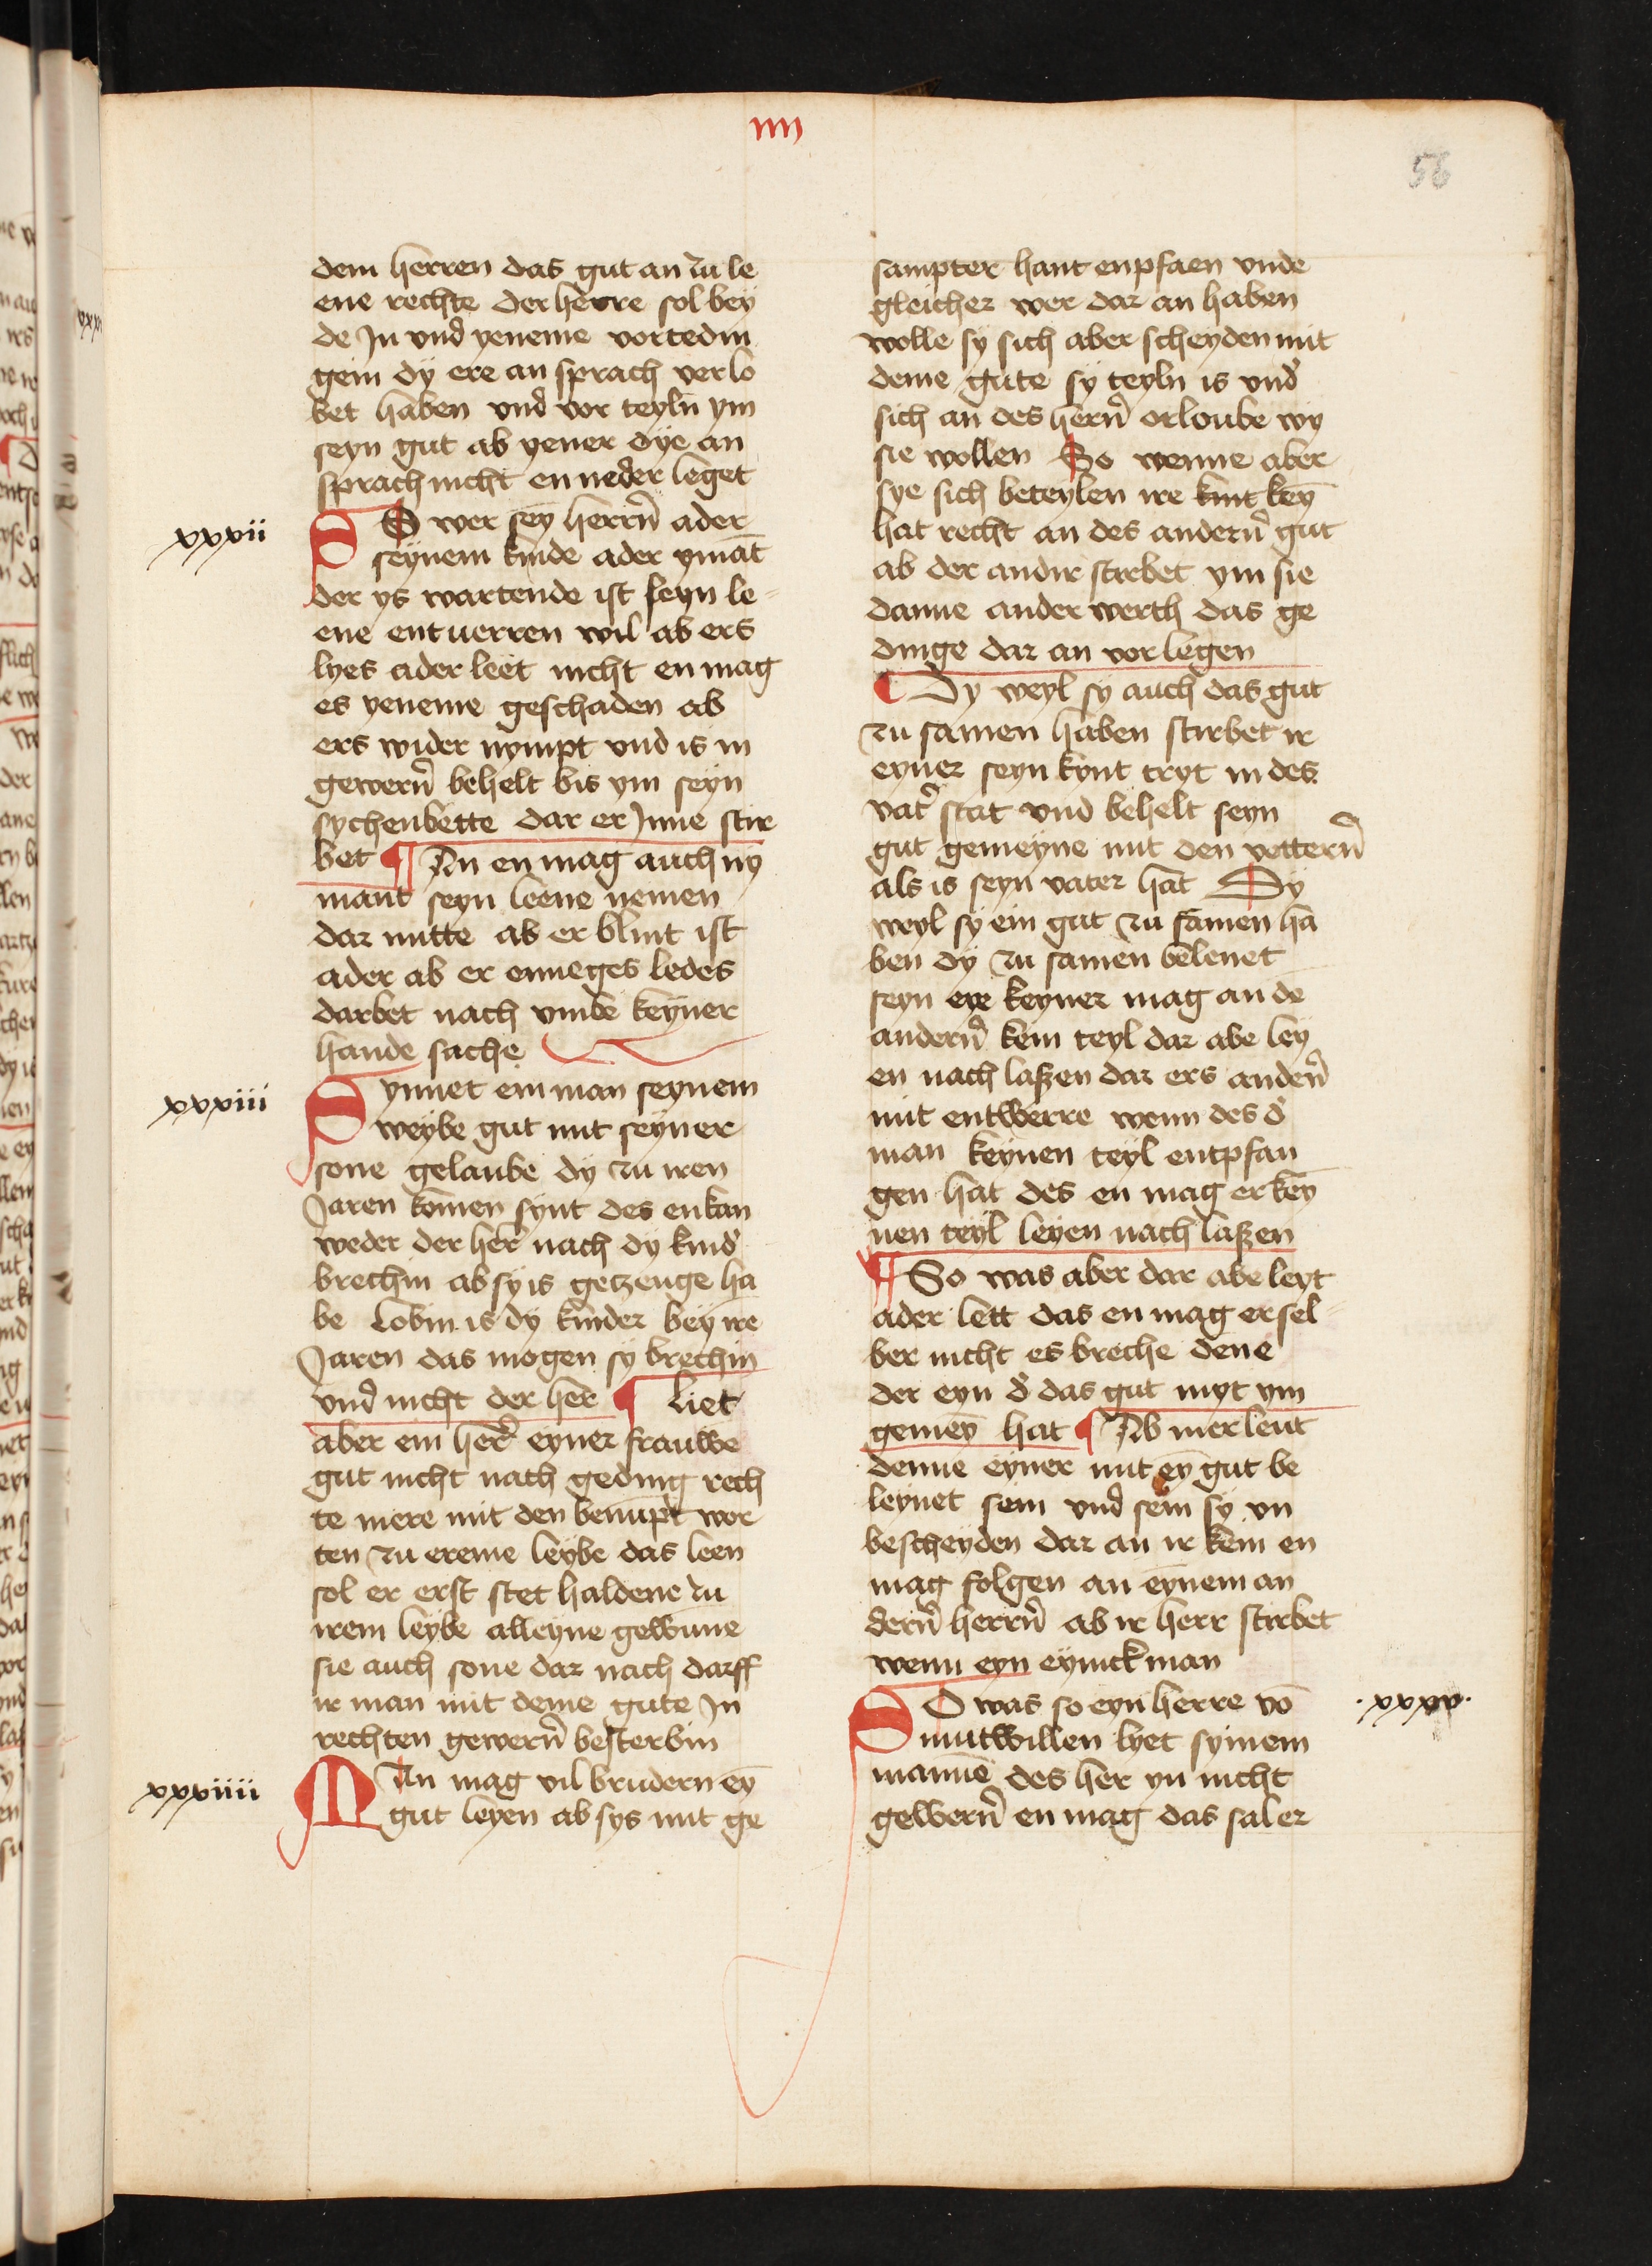 iiii
56
dem herren das gut an zu le
ene rechte der herre sol bey
de Jn vnd᷎ yeneme vortedin
gein dÿ ere an sprach verlo
bet haben vnd᷎ vor teyln ym
seyn gut ab yener dye an
sprach nicht en neder leget
xxxii
SO wer sey̅ herrn̉ ader
seynem kinde ader ymãt
der ys wartende ist seyn le-
ene entuerren wil ab ers
lyes ader leet nicht en mag
es yeneme geschaden ab
ers wider nympt vnd is in
gewern̉ behelt bis ym seyn
sychenbette dar er Jnne stir
bet ¶ An en mag auch ny
mant seyn leene nemen
dar mitte ab er blint ist
ader ab er enneges ledes
darbet nach vmbe keyner
hande sache
xxxiii
Synnet ein man seynem
weybe gut mit seyner
sone gelaube dy zu iren
Jaren komen synt des enkan
weder der her nach dy kind᷎
brechin ab sy is getzeuge ha
be Lobin is dy kinder bey ire
Jaren das mogen sy brechin
vnd᷎ nicht der her ¶ Liet
aber ein her̉ eyner frauwe
gut nicht nach geding rech
te mere mit den benu̅pt wor
ten zu ereme leybe das leen
sol er erst stet haldene zu
irem leybe alleyne gewu̅ne
sie auch sone dar nach darff
ir man mit deme gute Jn
rechten gewern̉ besterbin
xxxiiii
MAn mag vil brudern ey̅
gut leyen ab sys mit ge
sampter hant enpfaen vnde
gleicher wer dar an haben
wolle sy sich aber scheyden mit
deme gute sy teyln is vnd᷎
sich an des hern̉ orloube wy
sie wollen So wenne aber
sye sich beteylen ire kint key̅
hat recht an des andern̉ gut
ab der andir stirbet ym sie
danne ander werth das ge
dinge dar an vor legen
¶ Dy weyl sy auch das gut
zu samen haben stirbet ir
eyner seyn kynt tryt in des
vat̉ stat vnd behelt seyn
gut gemeyne mit den vettern̉
als is seyn vater hat Dy
weyl sy ein gut zu samen ha
ben dy zu samen belenet
seyn eye keyner mag an de̅
andern̉ kein teyl dar abe ley
en nach laßen dar ers anden̉
mit entwerre wenn des d᷎
man keynen teyl entpfan
gen hat des en mag er key̅
nen teyl leyen nach laßen
¶ So was aber dar abe leyt
ader lett das en mag er sel-
ber nicht es breche dene
der eyn d᷎ das gut myt ym
gemey̅ hat ¶ Ab mer leut
denne eyner mit ey̅ gut be
leynet sein vnd᷎ sein sy vn
bescheyden dar an ir kein en
mag folgen an eynem an
dern̉ herrn̉ ab ir herr stirbet
wenn eyn eynick man
.xxxv.
SO was so eyn herre vo̅
mutwillen lyet synem
manne des her yn nicht
gewern̉ en mag das sal er